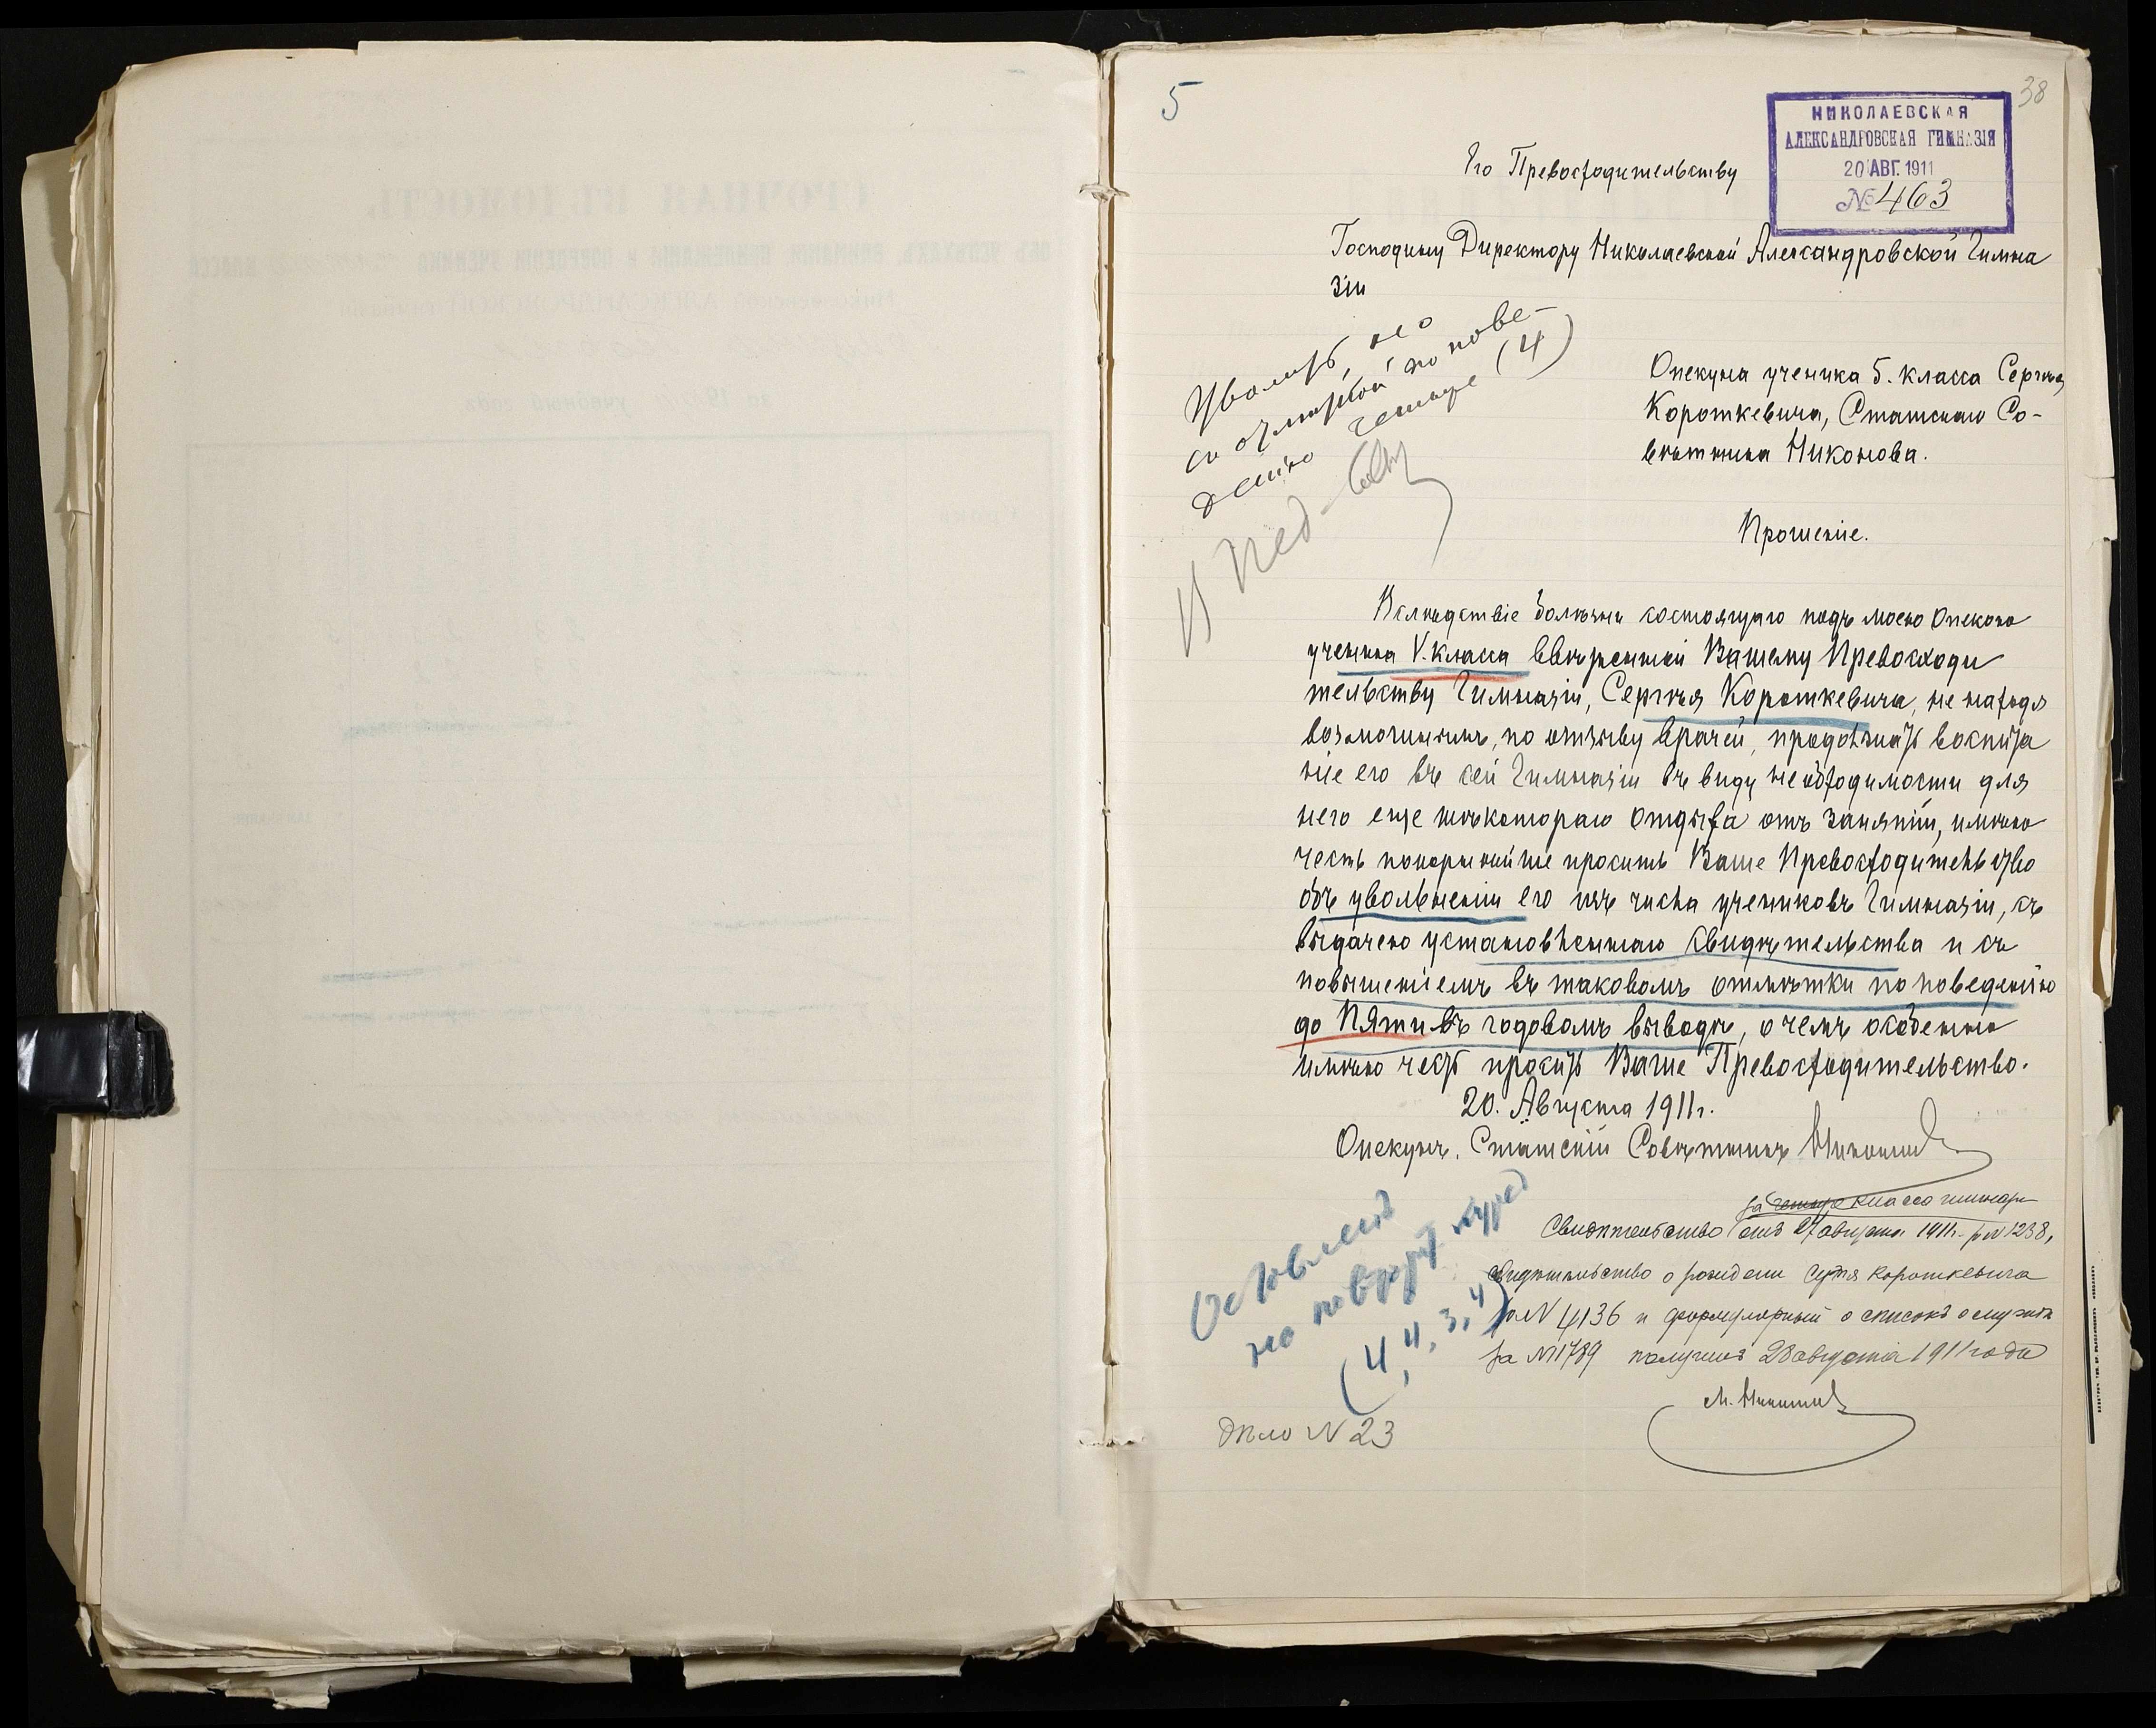 5
38
НИКОЛАЕВСКАЯ
АЛЕКСАНДРОВСКАЯ ГИМНАЗІЯ
20 АВГ. 1911
№ 463
Его Превосходительству
Господину Директору Николаевской Александровской Гимна
зіи
Уволить, но
съ отметкой по пове-
денію четыре (4)
Опекуна ученика 5. класса Сергѣя
Короткевича, Статскаго Со-
вѣтника Никонова.
Прошеніе.
Вслѣдствіе болѣзни состоящаго подъ моею опекою
ученика V. класса ввѣренной Вашему Превосходи
тельству Гимназіи, Сергѣя Короткевича, не находя
возможнымъ, по отзыву врачей, продолжать воспита
ніе его въ сей Гимназіи въ виду необходимости для
него еще нѣкотораго отдыха отъ занятій, имѣю
честь покорнѣйше просить Ваше Превосходительство
объ увольненіи его изъ числа учениковъ Гимназіи, съ
выдачею установленнаго свидѣтельства и съ
повышеніемъ въ таковомъ отмѣтки по поведенію
до Пяти въ годовомъ выводѣ, о чемъ особенно
имѣю честь просить Ваше Превосходительство.
20. Августа 1911г.
Опекунъ, Статскій Совѣтникъ Никонов
за четыре класса
Свидѣтельство отъ 27 августа 1911г. за № 1238,
свидѣтельство о рожденіи Сергѣя Короткевича
за № 4136 и формулярный о списокъ о службѣ
за № 1789 получилъ 28 августа 1911 года
М. Никонов
Оставленъ
на повторит. курсъ
(4, 4, 3, 4)
Дѣло № 23